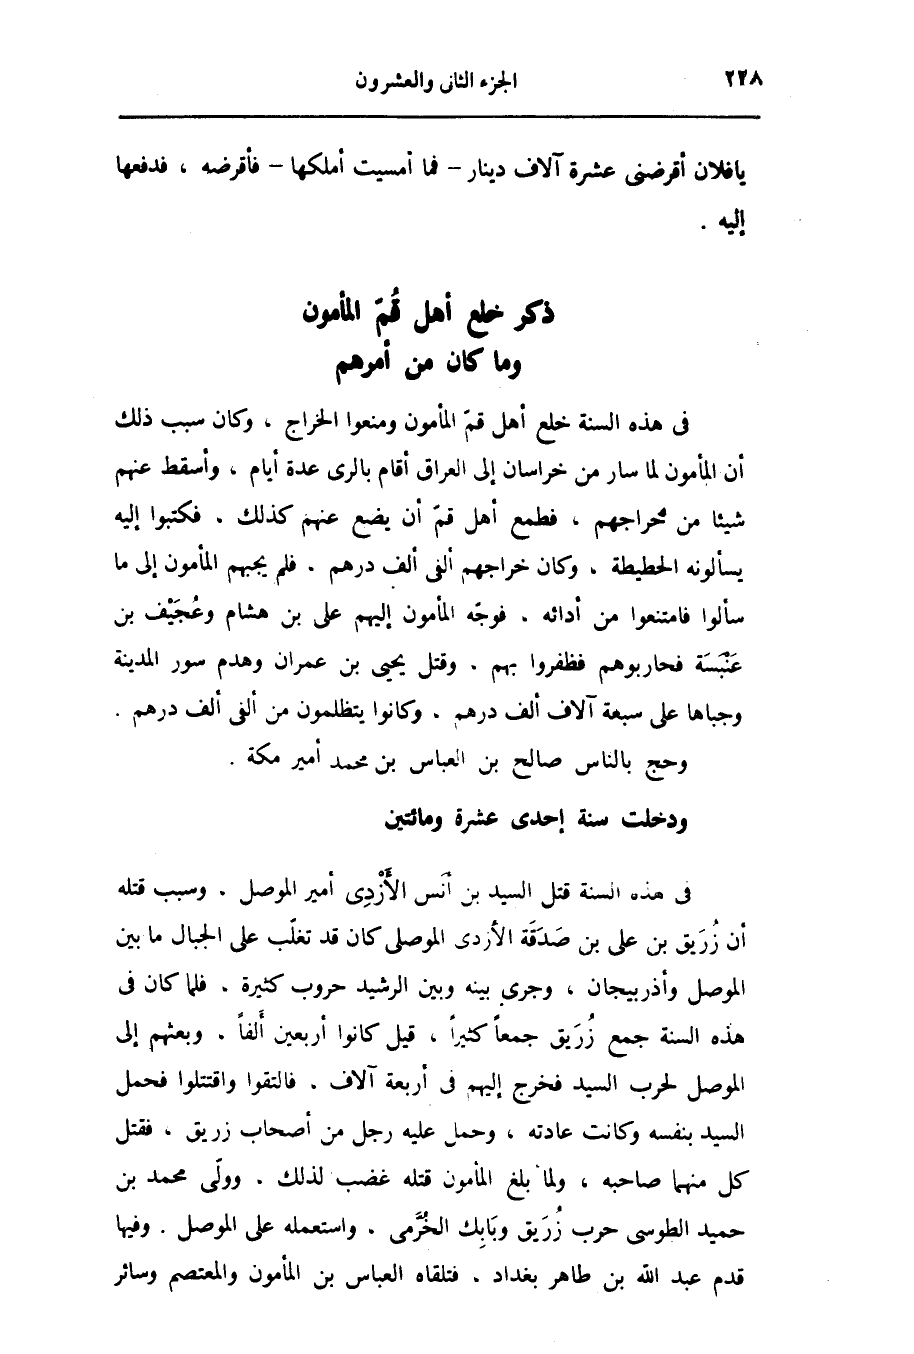 ٢٢٨
الجزء الثانى والعشرون
يافلان أقرضنى عشرة آلاف دينار – فما أمسيت أملكها – فأقرضه ، فدفعها
إليه .
ذكر خلع أهل قُمّ المأمون
وما كان من أمرهم
فى هذه السنة خلع أهل قمّ المأمون ومنعوا الخراج ، وكان سبب ذلك
أن المأمون لما سار من خراسان إلى العراق أقام بالرى عدة أيام ، وأسقط عنهم
شيئا من خراجهم ، فطمع أهل قمّ أن يضع عنهم كذلك . فكتبوا إليه
يسألونه الحطيطة . وكان خراجهم ألفى ألف درهم . فلم يجبهم المأمون إلى ما
سألوا فامتنعوا من أدائه . فوجّه المأمون إليهم على بن هشام وعُجَيْف بن
عَنْبَسَة فحاربوهم فظفروا بهم . وقتل يحيى بن عمران وهدم سور المدينة
وجباها على سبعة آلاف ألف درهم . وكانوا يتظلمون من ألفى ألف درهم .
وحج بالناس صالح بن العباس بن محمد أمير مكة .
ودخلت سنة إحدى عشرة ومائتين
فى هذه السنة قتل السيد بن أنَس الأَزْدِى أمير الموصل . وسبب قتله
أن زُرَيق بن على بن صَدَقَة الأزدى الموصلى كان قد تغلّب على الجبال ما بين
الموصل وأذربيجان ، وجرى بينه وبين الرشيد حروب كثيرة . فلما كان فى
هذه السنة جمع زُرَيق جمعاً كثيراً ، قيل كانوا أربعين ألفاً . وبعثهم إلى
الموصل لحرب السيد فخرج إليهم فى أربعة آلاف . فالتقوا واقتتلوا فحمل
السيد بنفسه وكانت عادته ، وحمل عليه رجل من أصحاب زريق ، فقتل
كل منهما صاحبه ، ولما بلغ المأمون قتله غضب لذلك . وولّى محمد بن
حميد الطوسى حرب زُرَيق وبَابِك الخُرَّمى . واستعمله على الموصل . وفيها
قدم عبد الله بن طاهر بغداد . فتلقاه العباس بن المأمون والمعتصم وسائر